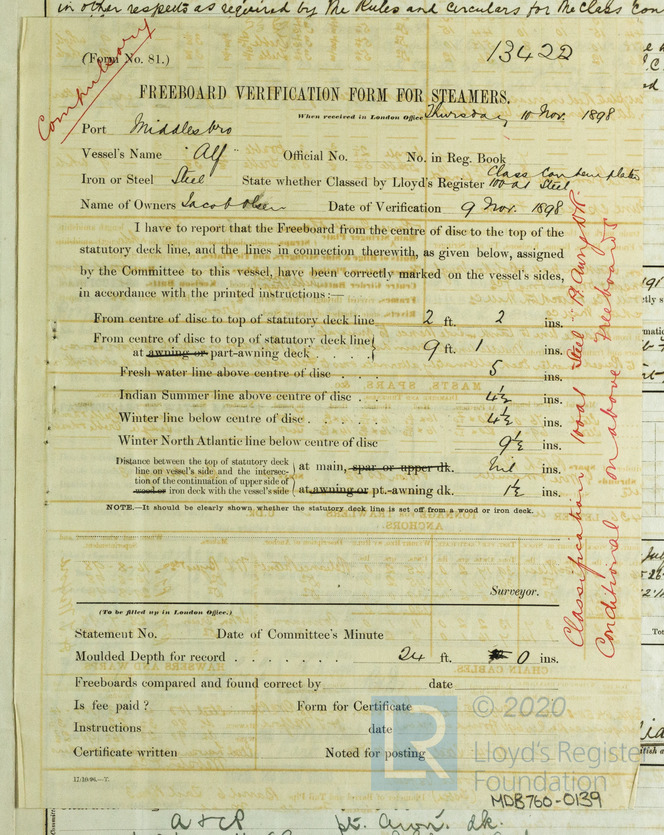 in other respects as required by the Rules and circulars for the Class Con
Compulsory
(Form No. 81.)
13422
FREEBOARD VERIFICATION FORM FOR STEAMERS.
When received in London Office Thursday 10 Nov. 1898
Port Middlesbro
Vessel's Name "Alf" Official No. No. in Reg. Book
Iron or Steel Steel State whether Classed by Lloyd's Register Class Contemplated 100A1 Steel
Name of Owners Jacob Olsen Date of Verification 9 Nov. 1898
I have to report that the Freeboard from the centre of disc to the top of the
statutory deck line, and the lines in connection therewith, as given below, assigned
by the Committee to this vessel, have been correctly marked on the vessel's sides,
in accordance with the printed instructions:—
From centre of disc to top of statutory deck line 2 ft. 2 ins.
From centre of disc to top of statutory deck line
at awning or part-awning deck . . . . 9 ft 1 ins.
Fresh water line above centre of disc . . . 5 ins.
Indian Summer line above centre of disc . . 4½ ins.
Winter line below centre of disc . . . . . 4½ ins.
Winter North Atlantic line below centre of disc 9½ ins.
Distance between the top of statutory deck
line on vessel's side and the intersec-
tion of the continuation of upper side of
wood or iron deck with the vessel's side
at main, spar or upper dk. Nil ins.
at awning or pt.-awning dk. 1½ ins.
NOTE.—It should be clearly shown whether the statutory deck line is set off from a wood or iron deck.
Surveyor.
(To be filled up in London Office.)
Statement No. Date of Committee's Minute
Moulded Depth for record . . . . . . . 24 ft. 0 ins.
Freeboards compared and found correct by date
Is fee paid ? Form for Certificate
Instructions date
Certificate written Noted for posting
Classification 100A1 Steel
Conditional on above Freeboards
LR
© 2020
Lloyd's Register
Foundation
MDB760-0139
A & CP pt. Awn. dk.